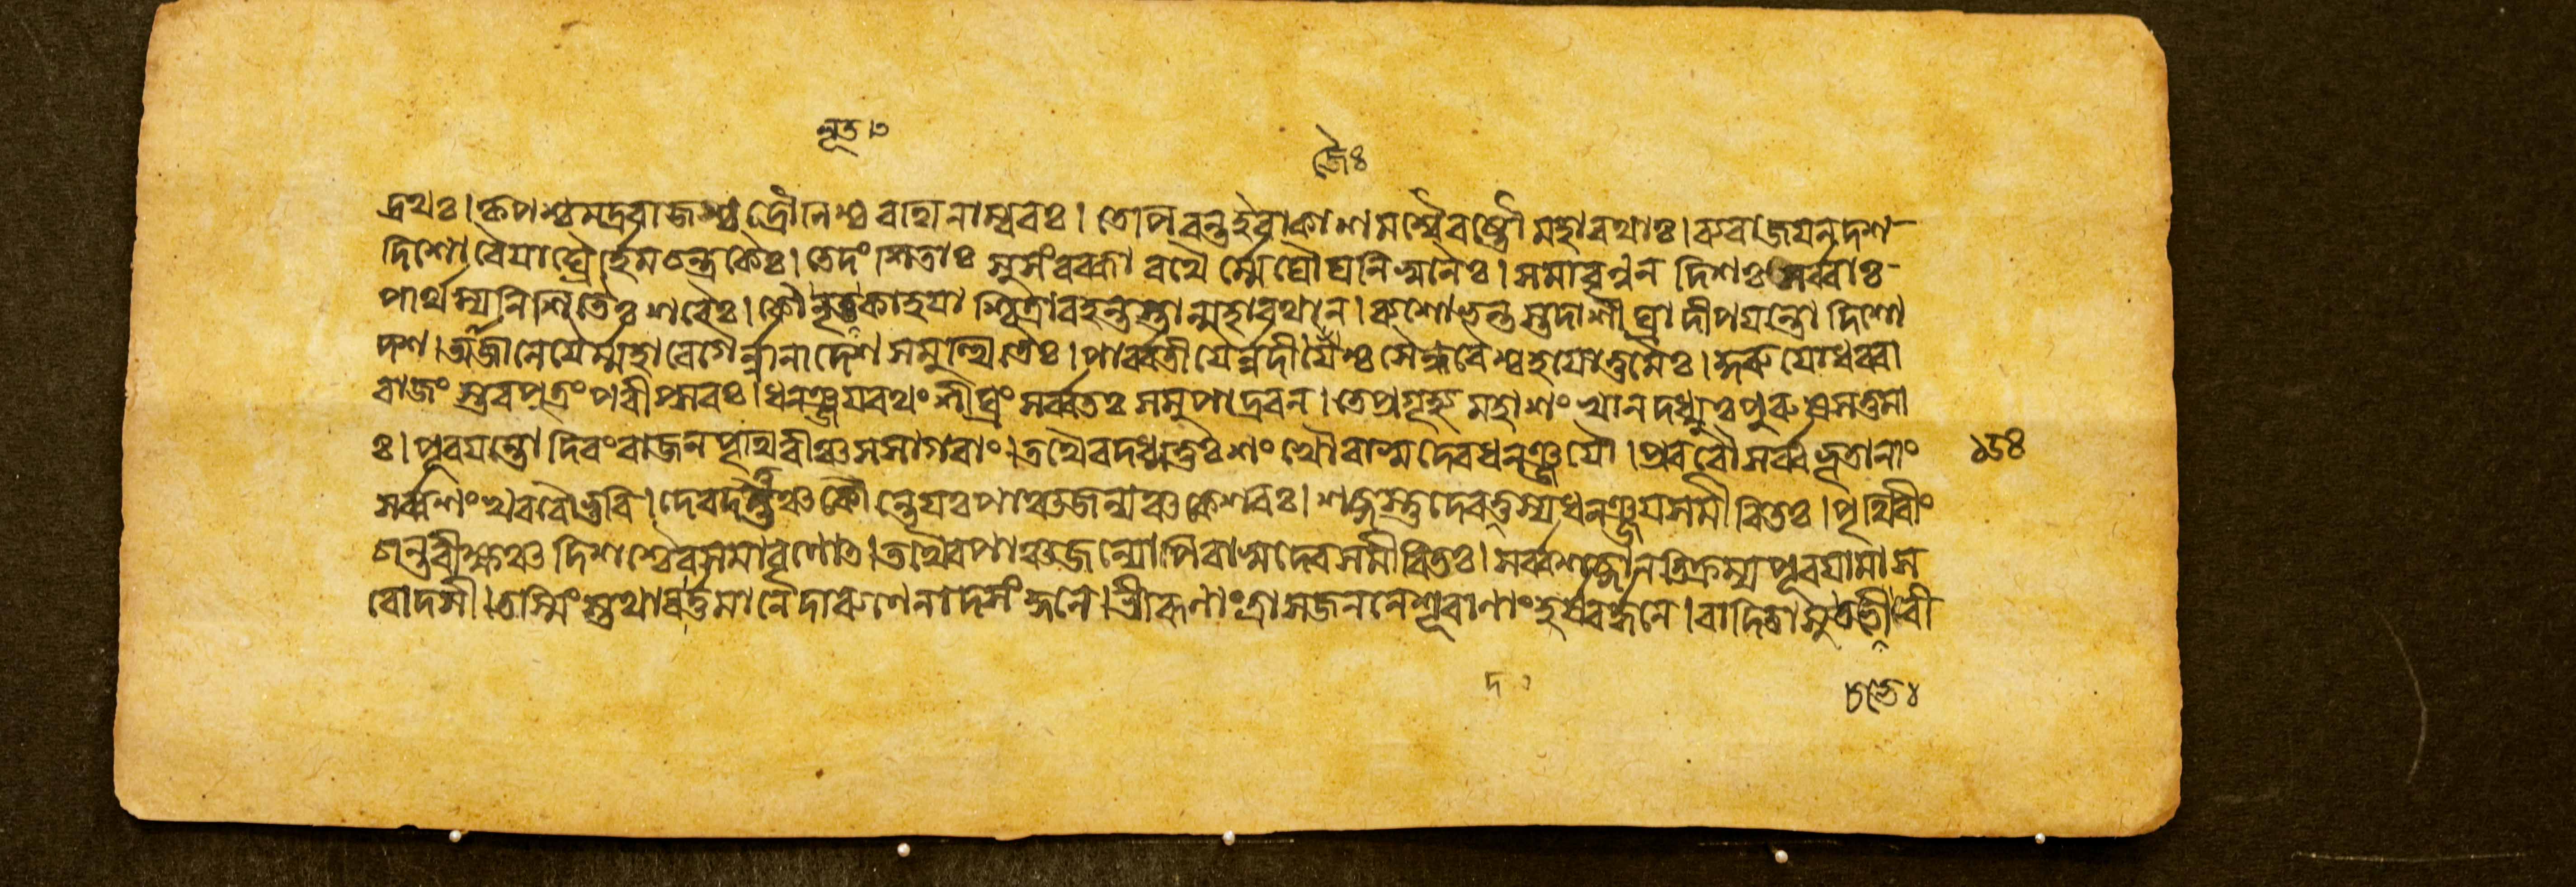 লূত।৩
জৈঃ
দ্রথঃ। কৃপশ্চমদ্ররাজশ্চদ্রৌণিশ্চরথিনাম্বরঃ। তেপিবন্তইবাকাশমশ্বৈরষ্টৌমহারথাঃ। ব্যরাজয়ন্দশ-
দিশোবৈয়াঘ্রৈর্হেমচন্দ্রকৈঃ। তেদংশিতাঃ সুসংরব্ধা রথৈর্ম্মেঘৌঘনিস্বনৈঃ। সমাবৃণ্বন্ দিশঃ সর্ব্বাঃ-
পার্থস্যনিশিতৈঃশরৈঃ। কৌলূতকাহয়াশ্চিত্রাবহন্তস্তান্মহারথান্। ব্যশোভন্তস্তদাশীঘ্রাদীপয়ন্তোদিশো
দশ। আজানেয়ৈর্ম্মহাবেগৈর্ন্নানাদেশসমুত্থিতৈঃ। পার্ব্বতীয়ৈর্ন্নদীয়ৈশ্চসৈন্ধবৈশ্চহয়োত্তমৈঃ। কুরুযোধবরা
রাজংস্তবপুত্রংপরীপ্সবঃ। ধনঞ্জয়রথংশীঘ্রংসর্ব্বতঃ সমুপাদ্রবন্। তেপ্রগৃহ্যমহাশংখান্দধ্মুঃপুরুষসত্তমা
ঃ। পূরয়ন্তোদিবংরাজন্পৃথিবীঞ্চসসাগরাং। তথৈবদধ্মতুঃশংখৌবাসুদেবধনঞ্জয়ৌ। প্রবরৌসর্ব্বভূতানাং
১৫৪
সর্ব্বশংখবরৌভুবি। দেবদত্তঞ্চকৌন্তেয়ঃপাঞ্চজন্যঞ্চকেশবঃ। শব্দস্তুদেবত্তস্যধনঞ্জয়সমীরিতঃ। পৃথিবীং
চান্তরীক্ষঞ্চদিশশ্চৈবসমাবৃণোত্। তথৈবপাঞ্চজন্যোপিবাসুদেবসমীরিতঃ। সর্ব্বশব্দানতিক্রম্যপূরয়ামাস
রোদসী। তস্মিংস্তথাবর্ত্তমানেদারুণেনাদসংকুলে। ভীরূণাংত্রাসজননেশূরাণাংহর্ষবর্দ্ধনে। বাদিতাসুচভেরী
দ